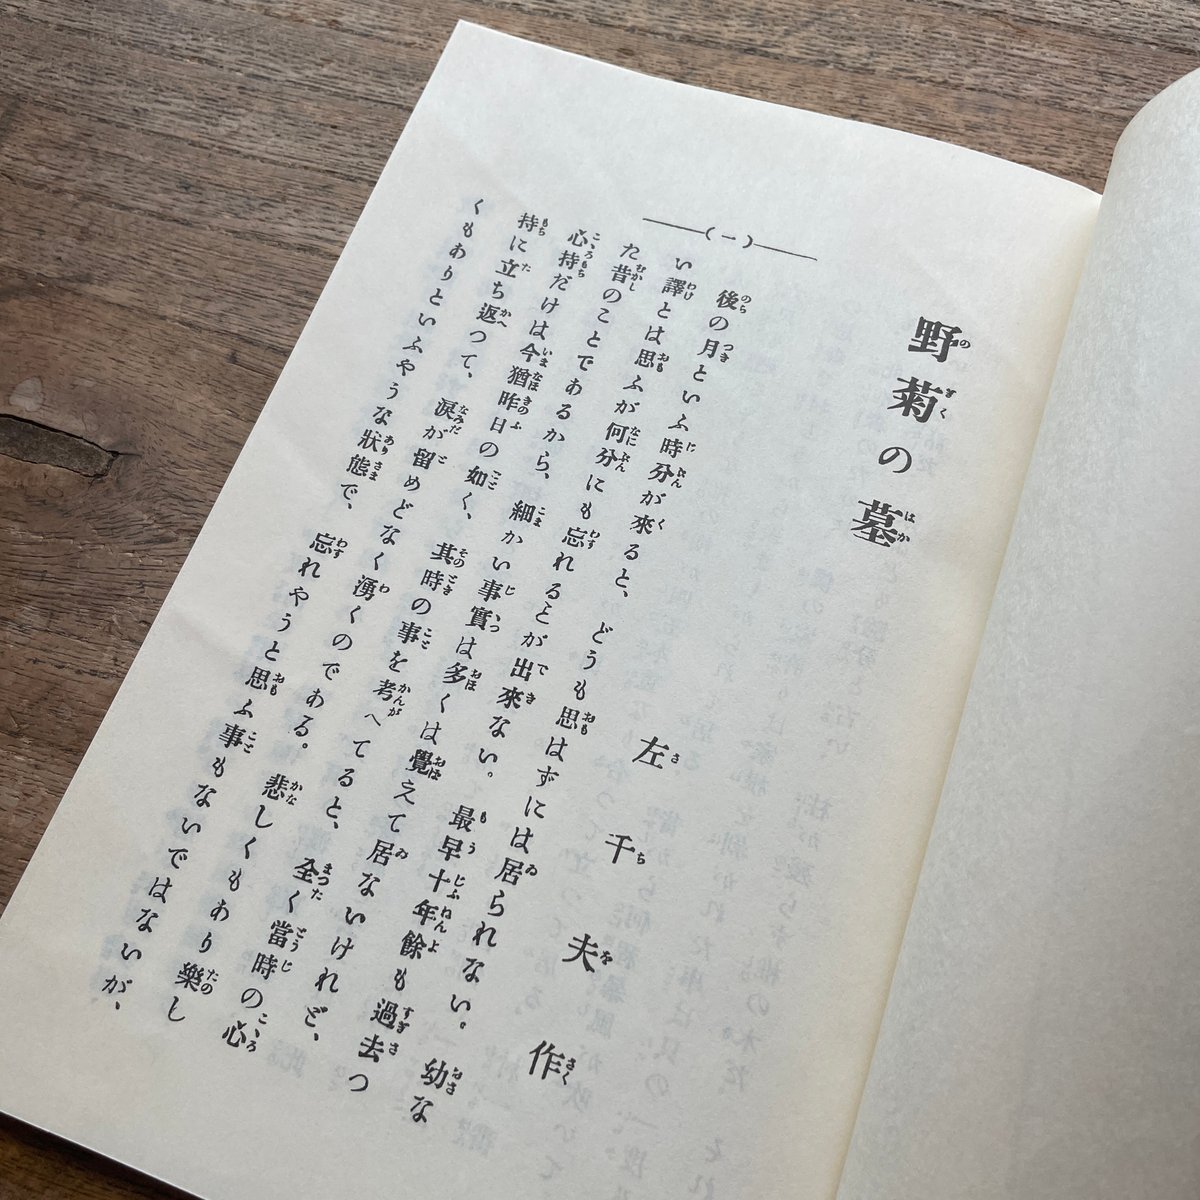 野菊の墓
左千夫作
(一)
後の月といふ時分が來ると、どうも思はずには居られない。幼な
い譯とは思ふが何分にも忘れることが出來ない。最早十年餘も過去つ
た昔のことであるから、細かい事實は多くは覺えて居ないけれど、
心持だけは今猶昨日の如く、其時の事を考へてると、全く當時の心
持に立ち返つて、涙が留めどなく湧くのである。悲しくもあり樂し
くもありといふやうな狀態で、忘れやうと思ふ事もないではないが、